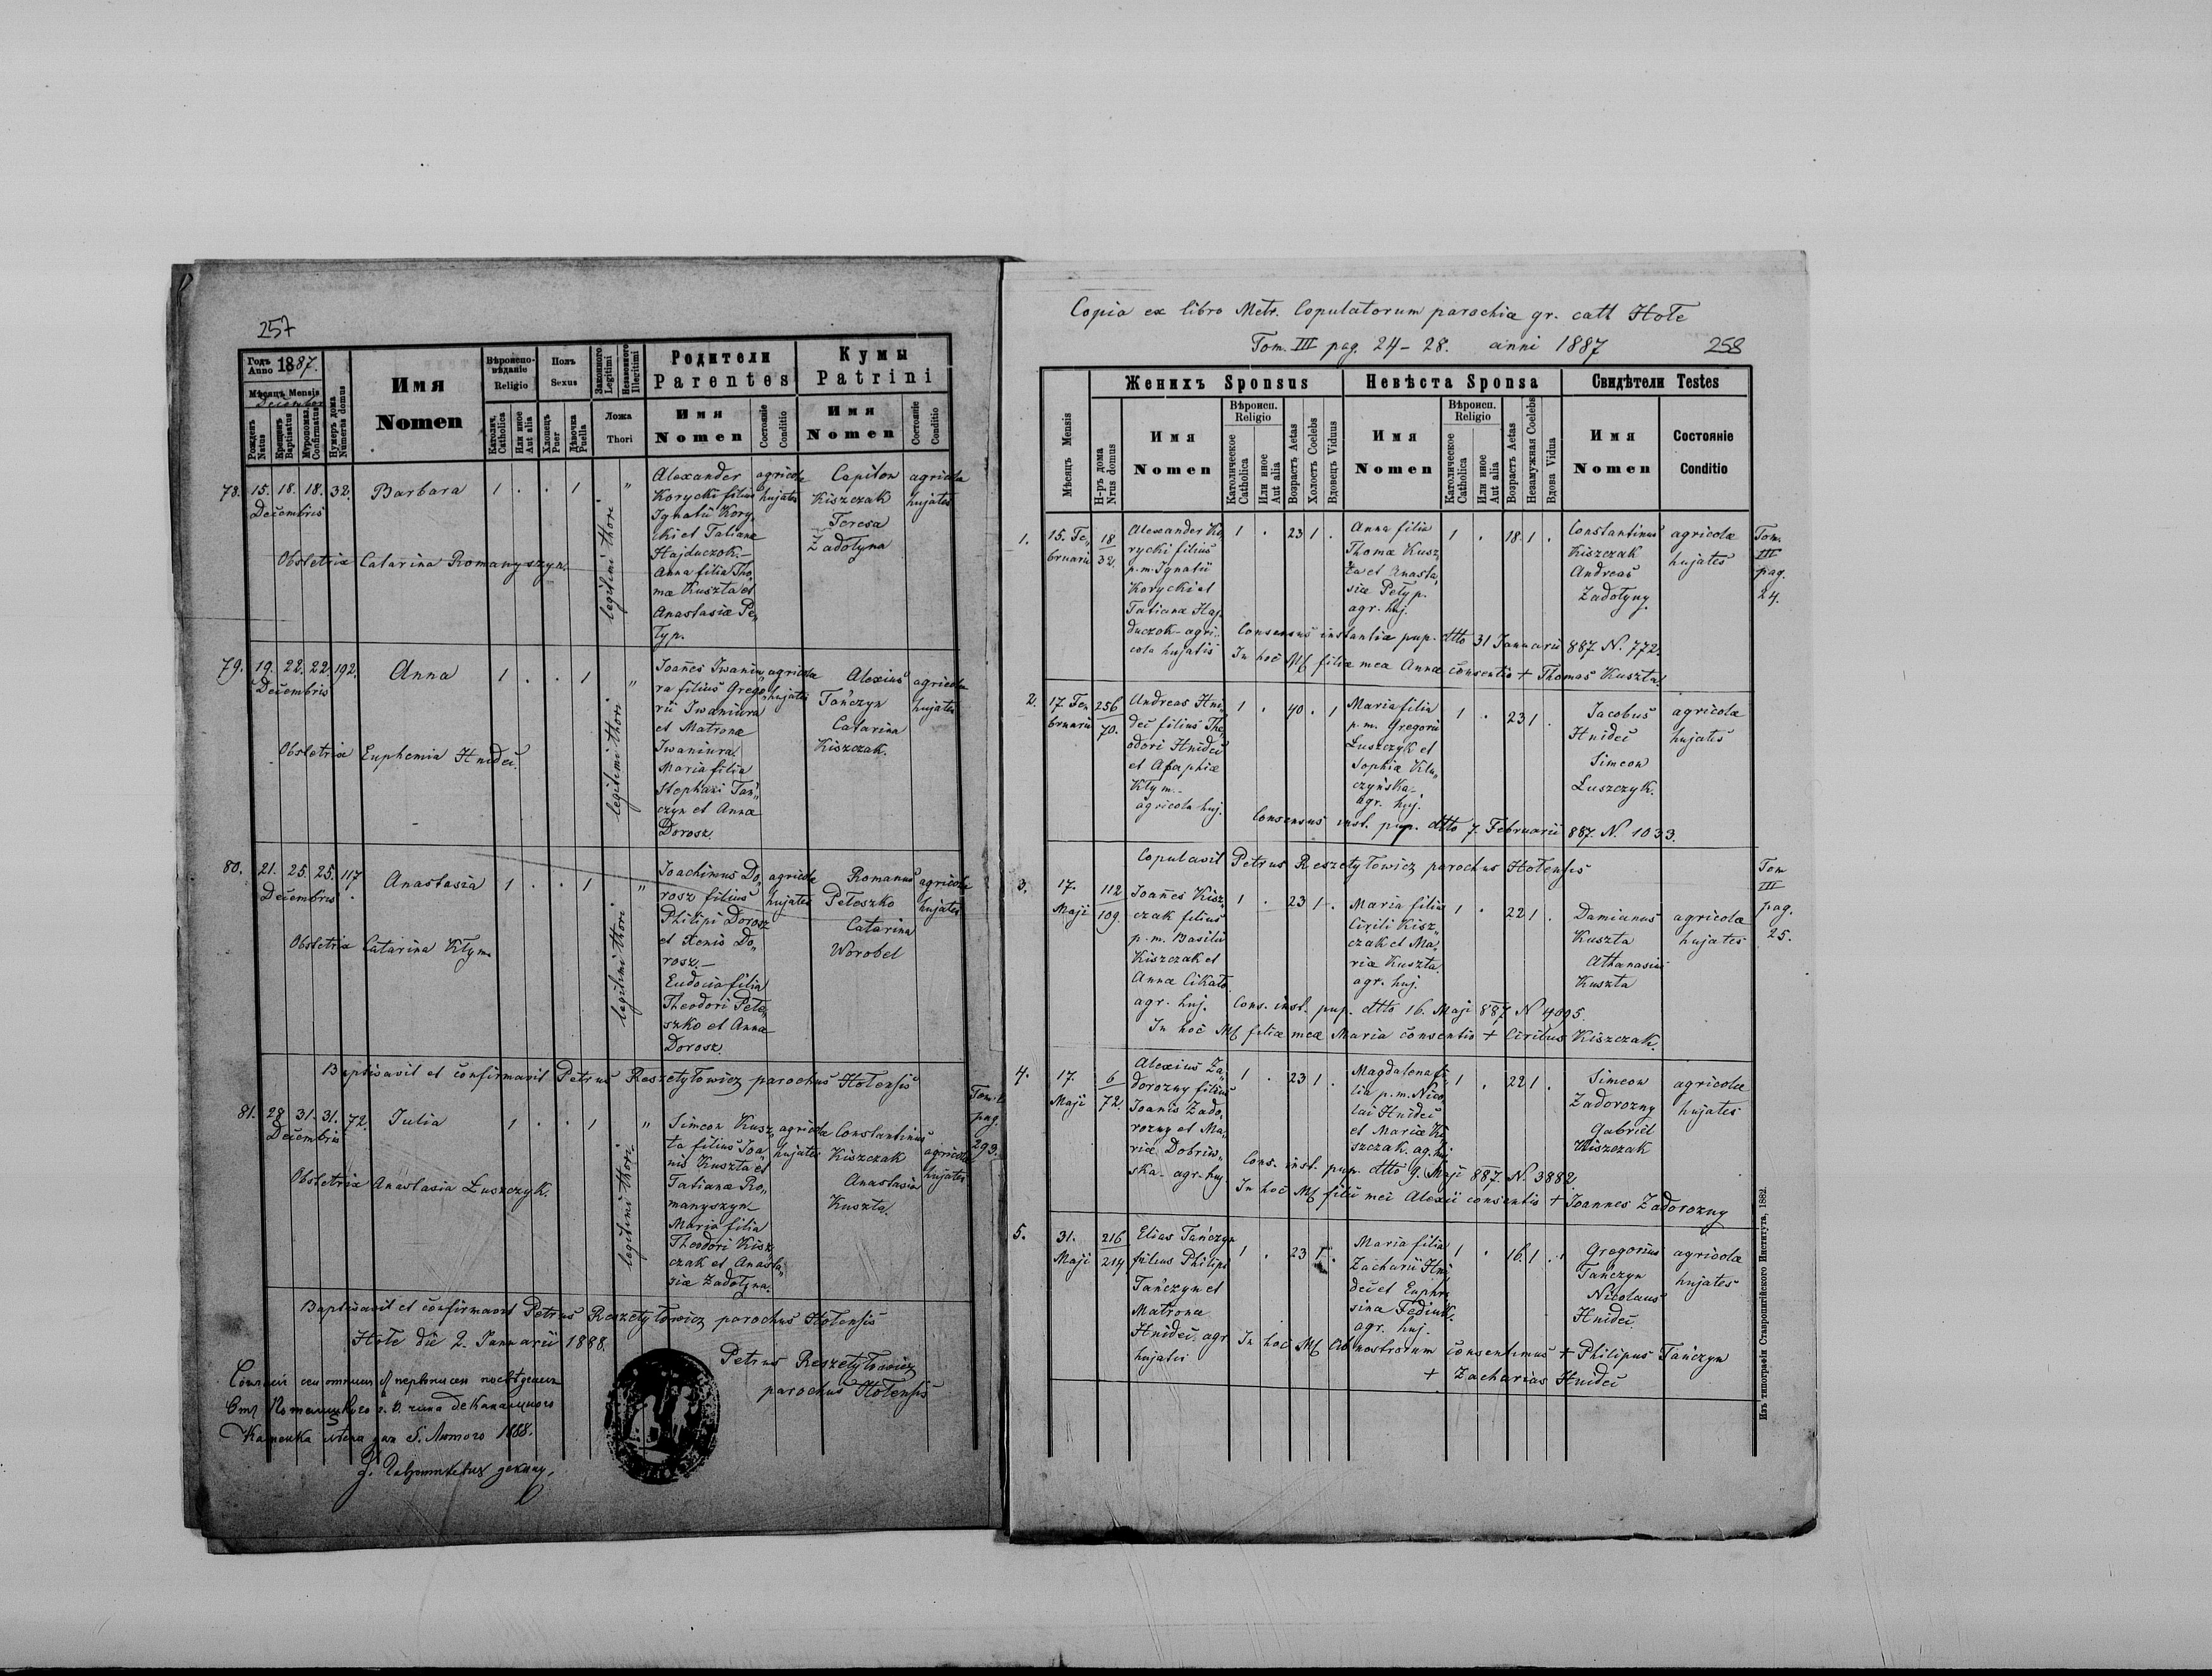 257
Годъ Anno 1887.
Мѣсяцъ Mensis
December
Рожденъ Natus
Крещенъ Baptisatus
Муропомаз. Confirmatus
Нумеръ дома Numerus domus
Имя
Nomen
Вѣроисповѣданіе
Religio
Католич. Catholica
Или иное Aut alia
Полъ
Sexus
Хлопецъ Puer
Дѣвочка Puella
Законного Legitimi
Незаконного Illegitimi
Ложа
Thori
Родители
Parentes
Имя
Nomen
Состояніе
Conditio
Кумы
Patrini
Имя
Nomen
Состояніе
Conditio
78. 15. 18. 18. 32. Barbara 1 . . 1 "
Decembris
legitimi thori
Alexander
Korycki filius
Ignatii Kory„
cki et Tatiana
Hajduczok.–
Anna filia Tho„
mæ Kuszta et
Anastasiæ Pe„
łyp.
agricolæ
hujates
Capiton
Kiszczak
Teresa
Zadołyna
agricolæ
hujates
Obstetrix Catarina Romanyszyn.
79. 19. 22. 22. 192. Anna 1 . . 1 "
Decembris
legitimi thori
Joañes Iwaniu„
ra filius Grego„
rii Iwaniura
et Matronæ
Iwaniura
Maria filia
Stephani Tań„
czyn et Annæ
Dorosz.
agricolæ
hujates
Alexius
Tańczyn
Catarina
Kiszczak.
agricolæ
hujates
Obstetrix Euphemia Hnideć.
80. 21. 25. 25. 117. Anastasia 1 . . 1 "
Decembris
legitimi thori
Joachimus Do„
rosz filius
Philipi Dorosz
et Xenio Do„
rosz.–
Eudocia filia
Theodori Pete„
szko et Annæ
Dorosz.
agricolæ
hujates
Romanus
Peteszko
Catarina
Worobel
agricolæ
hujates
Obstetrix Catarina Kłym
Baptisavit et confirmavit Petrus Reszetyłowicz parochus Hołensis
81. 28. 31. 31. 72. Julia 1 . . 1 "
Decembris
legitimi thori.
Simeon Kusz„
ta filius Joa„
nis Kuszta et
Tatianæ Ro„
manyszyn
Maria filia
Theodori Kisz„
czak et Anasta„
siæ Zadołyna.
agricolæ
hujates
Constantinus
Kiszczak
Anastasia
Kuszta.
agricolæ
hujates
pag.
293.
Obstetrix Anastasia Łuszczyk.
Baptisavit et confirmavit Petrus Reszetyłowicz parochus Hołensis
Hołe die 2. Januarii 1888.
Petrus Reszetyłowicz
parochus Hołensis
1888.
Copia ex libro Metr. Copulatorum parochiæ gr. cath Hołe
Tom. III pag. 24–28. anni 1887
258
Мѣсяцъ Mensis
Н-ръ дома Nrus domus
Женихъ Sponsus
Имя
Nomen
Вѣроисп. Religio
Католическое Catholica
Или иное Aut alia
Возрастъ Aetas
Холостъ Coelebs
Вдовецъ Viduus
Невѣста Sponsa
Имя
Nomen
Вѣроисп. Religio
Католическое Catholica
Или иное Aut alia
Возрастъ Aetas
Незамужная Coelebs
Вдова Vidua
Свидѣтели Testes
Имя
Nomen
Состояніе
Conditio
1. 15. Fe„
bruarii
18
32.
Alexander Ko„
rycki filius
p. m. Ignatii
Korycki et
Tatianæ Haj„
duczok–agri„
cola hujatis
1 . 23 1 .
Anna filia
Thomæ Kusz„
ta et Anasta„
siæ Pełyp.
agr. huj.
1 . 18. 1 .
Constantinus
Kiszczak
Andreas
Zadołyny
agricolæ
hujates
Tom.
III
pag.
24.
Consensus instantiæ pup. dtto 31 Januarii 887. N. 772.
In hoc M/ filiæ meæ Annæ consentio + Thomas Kuszta.
2. 17 Fe„
bruarii
256
70.
Andreas Hni„
deć filius The„
odori Hnideć
et Agaphiæ
Kłym.–
agricola huj.
1 . 40 . 1
Maria filia
p. m. Gregorii
Łuszczyk et
Sophiæ Klu„
czyńska–
agr. huj.
1 . 23 1 .
Jacobus
Hnideć
Simeon
Łuszczyk.
agricolæ
hujates
Consensus inst. pup. dtto 7. Februarii 887. N. 1033.
Copulavit Petrus Reszetyłowicz parochus Hołensis
3. 17.
Maji
112
109.
Joañes Kisz„
czak filius
p. m. Basilii
Kiszczak et
Anna Cikało
agr. huj.
1 . 23 1 .
Maria filia
Cirili Kisz„
czak et Ma„
riæ Kuszta.
agr. huj.
1 . 22 1 .
Damianus
Kuszta
Athanasius
Kuszta
agricolæ
hujates
Tom
III
pag.
25.
Cons. inst. pup. dtto 16. Maji 887 N 4095.
In hoc M/ filiæ meæ Maria consentio + Cirilus Kiszczak.
4. 17.
Maji
6
72.
Alexius Za„
dorozny filius
Joanis Zado„
rozny et Ma„
riæ Dobrins„
ska– agr. huj
1 . 23 1 .
Magdalena fi„
lia p. m. Nico„
lai Hnideć
et Mariæ Ki„
szczak. ag. huj.
1 . 22 1 .
Simeon
Zadorozny
Gabriel
Kiszczak
agricolæ
hujates
Cons. inst. pup. dtto 9. Maji 887. N. 3882.
In hoc M/ filii mei Alexii consentis + Joannes Zadorozny
5. 31.
Maji
216
214.
Elias Tańczyn
filius Philipi
Tańczyn et
Matrona
Hnideć. agr
hujatis
1 . 23 1 .
Maria filia
Zachariæ Hni„
deć et Euphro„
sinæ Fediuk.
agr. huj.
1 . 16. 1 .
Gregorius
Tańczyn
Nicolaus
Hnideć.
agricolæ
hujates
In hoc M/ nostrorum consentimus + Philipus Tańczyn
+ Zacharias Hnideć
Изъ типографіи Ставропигійского Института, 1882.